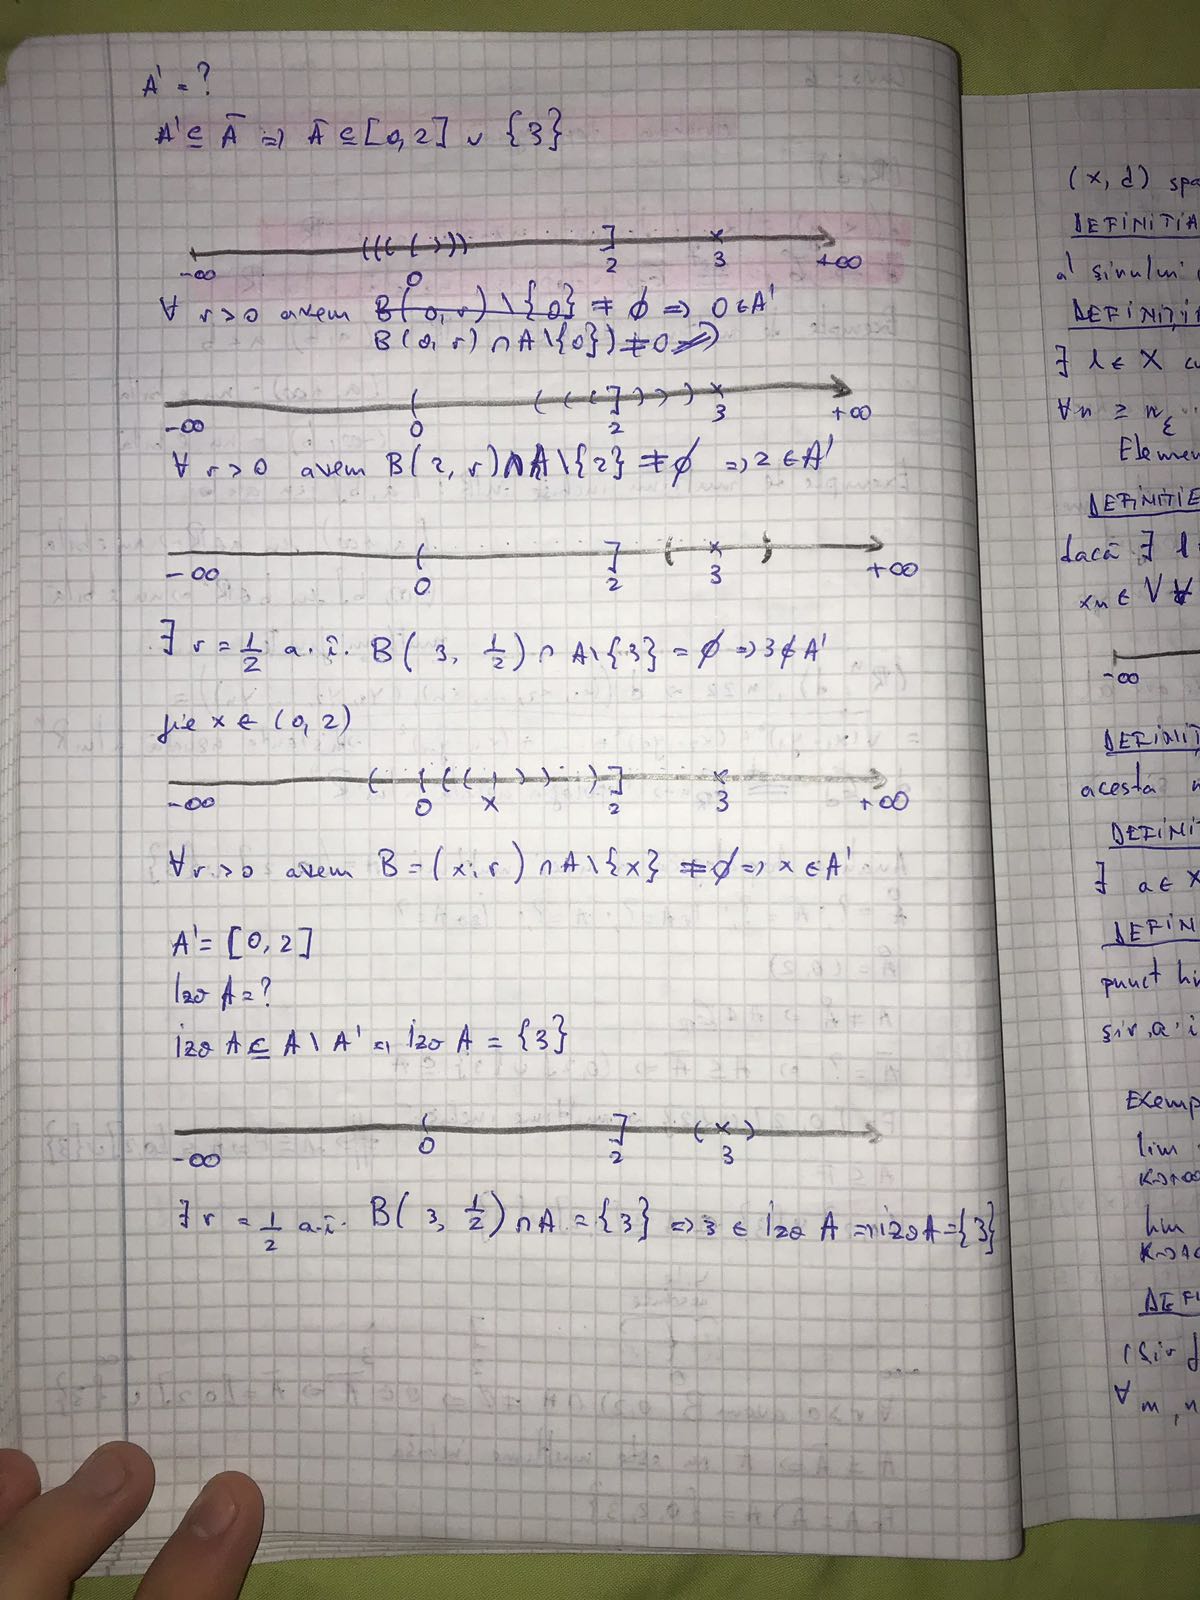 A' = ?
A' ⊆ Ā ⇒ Ā ⊆ [0,2] ∪ {3}
-∞ 0 2 3 +∞
∀ r>0 avem B(0,r) \ {0} ≠ ∅ ⇒ 0 ∈ A'
B(0,r) ∩ A \ {0}) ≠ 0 ⇒
-∞ 0 2 3 +∞
∀ r>0 avem B(2,r) ∩ A \ {2} ≠ ∅ ⇒ 2 ∈ A'
-∞ 0 2 3 +∞
∃ r = 1/2 a.î. B(3, 1/2) ∩ A \ {3} = ∅ ⇒ 3 ∉ A'
fie x ∈ (0,2)
-∞ 0 x 2 3 +∞
∀ r>0 avem B = (x; r) ∩ A \ {x} ≠ ∅ ⇒ x ∈ A'
A' = [0,2]
Izo A = ?
izo A ⊆ A \ A' ⇒ Izo A = {3}
-∞ 0 2 3
∃ r = 1/2 a.î. B(3, 1/2) ∩ A = {3} ⇒ 3 ∈ Izo A ⇒ izo A = {3}
(X, d) spa
DEFINIȚIA
al șirului
DEFINIȚI
∃ l ∈ X
∀ n ≥ nε
Elemen
DEFINIȚIE
dacă ∃ l
xn ∈ V ∀
-∞
DEFINIȚ
acesta
DEFINIȚ
∃ a ∈ X
DEFIN
punct
șir, a.î
Exemp
lim
lim
DEFI
(șir
∀ m, n